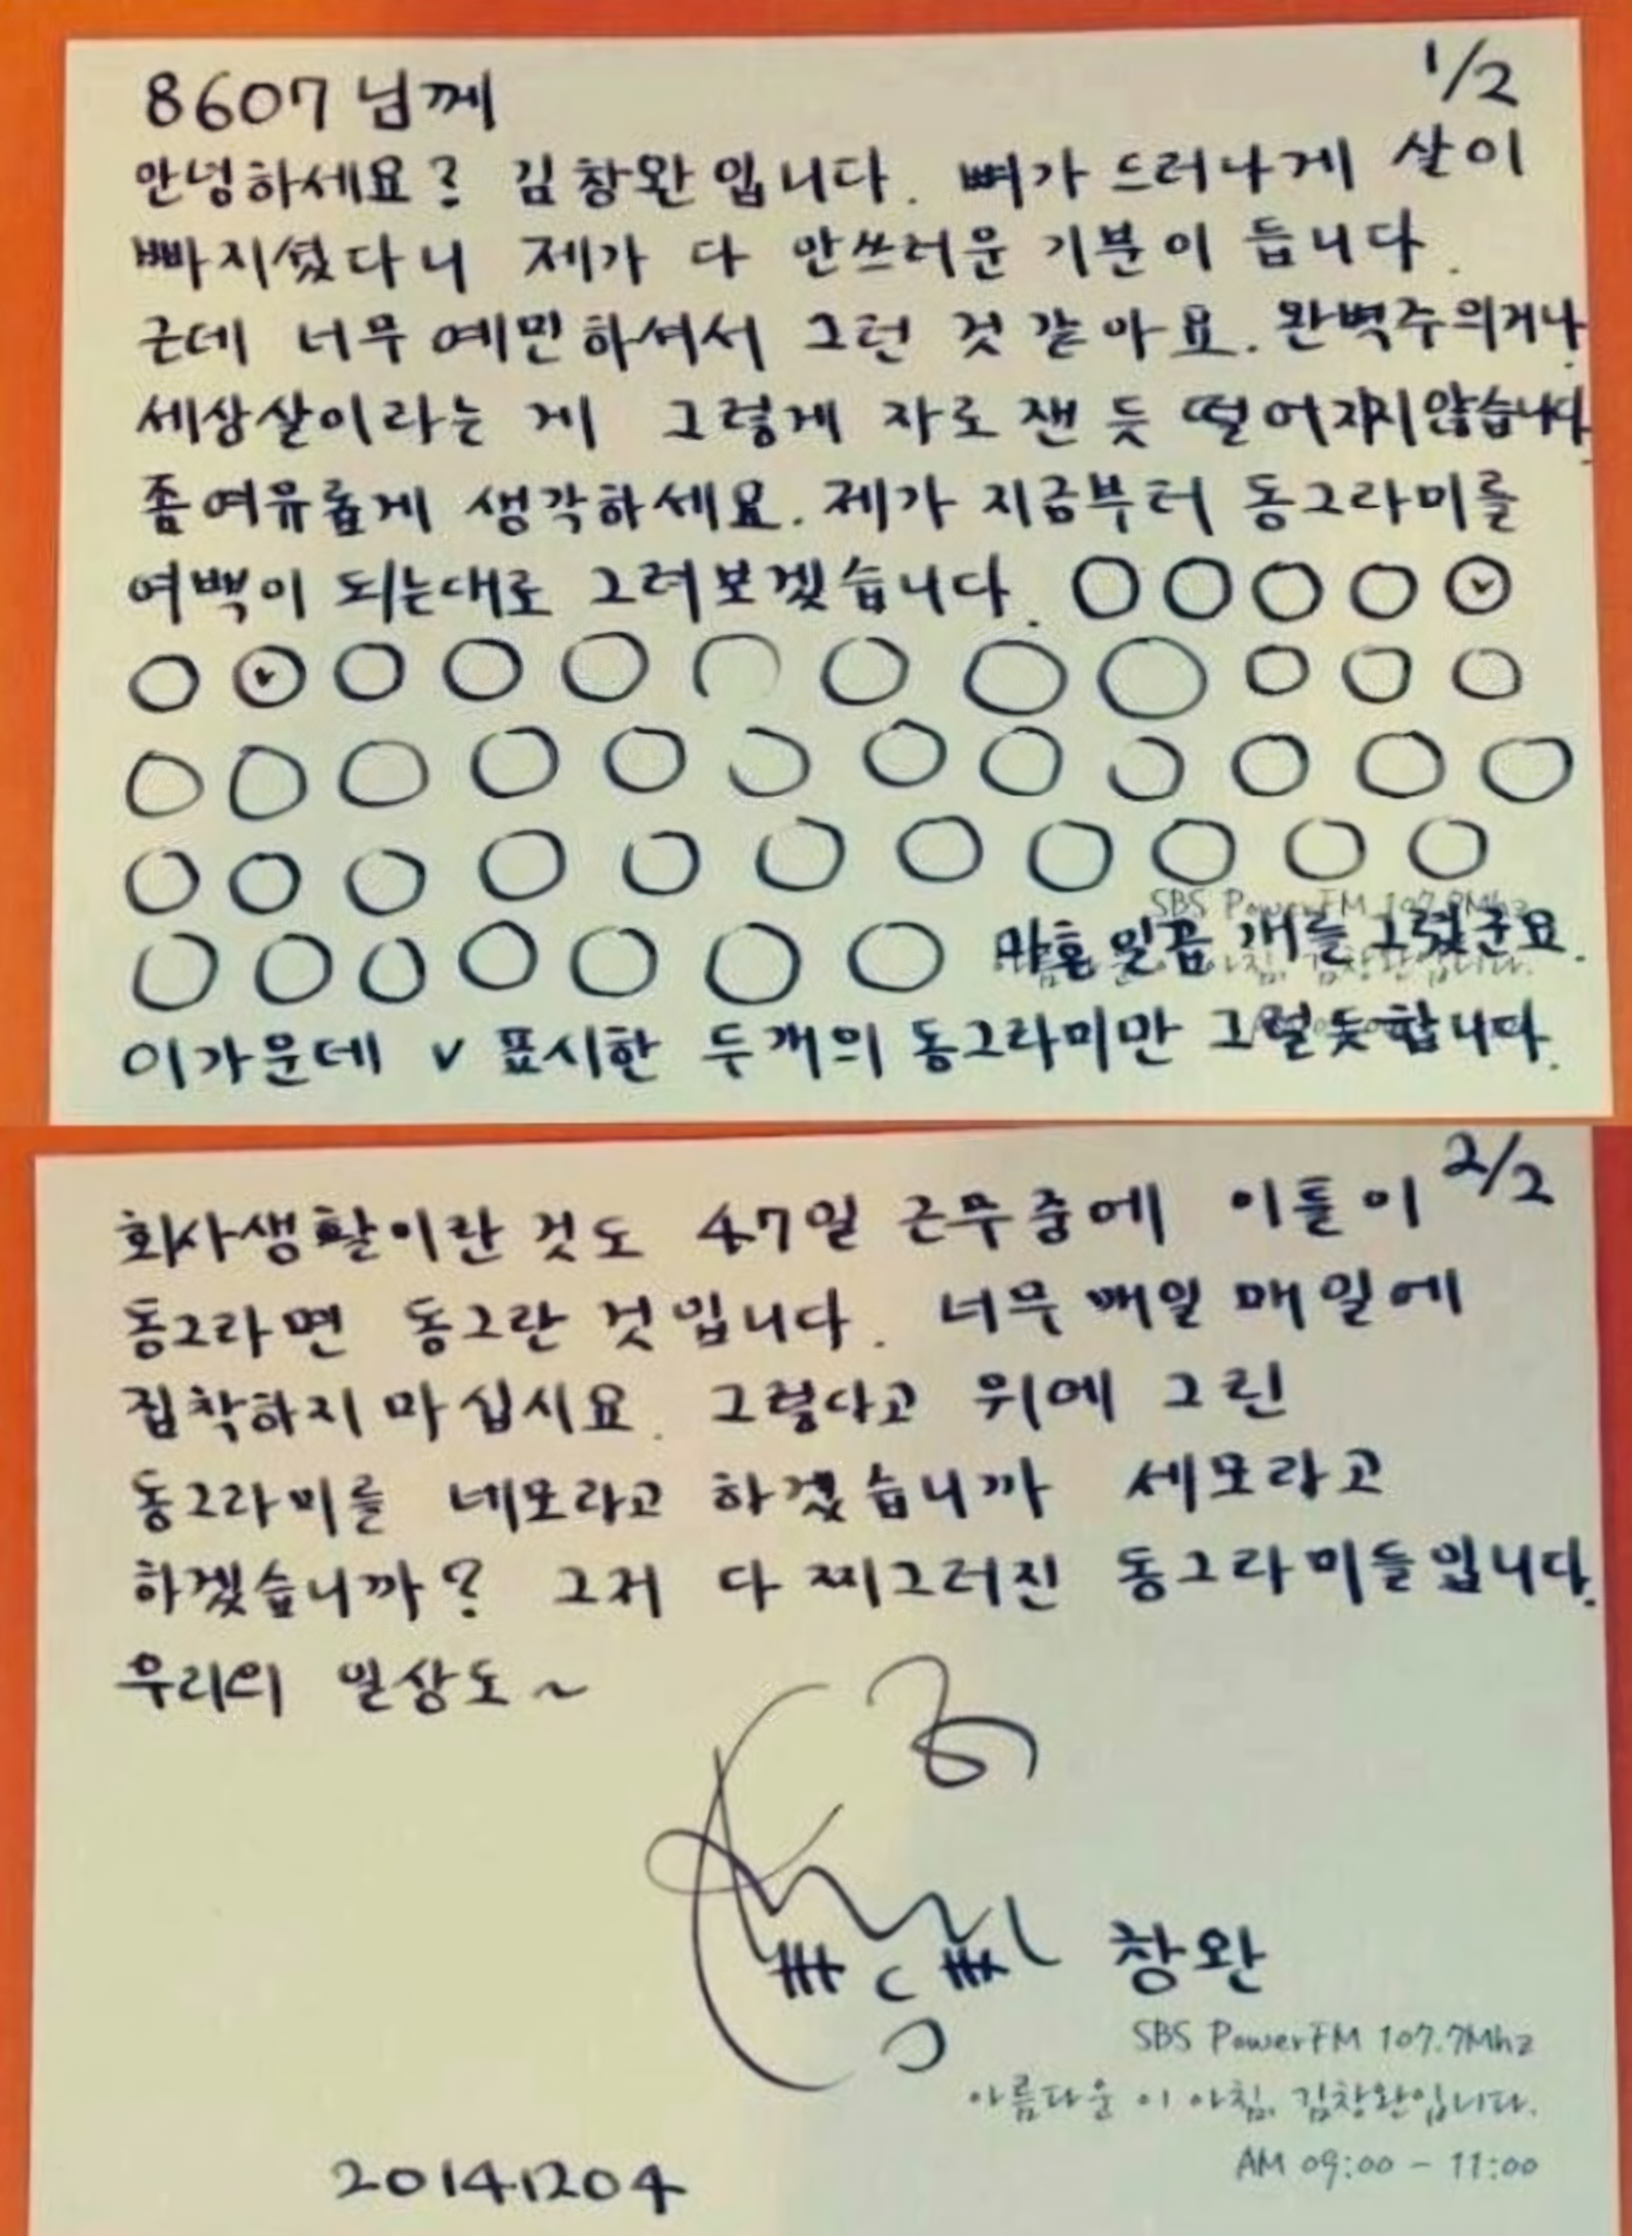 8607님께
1/2
안녕하세요? 김창완입니다. 뼈가 드러나게 살이
빠지셨다니 제가 다 안쓰러운 기분이 듭니다.
근데 너무 예민하셔서 그런 것 같아요. 완벽주의거나
세상살이라는 게 그렇게 자로 잰 듯 떨어지지 않습니다.
좀 여유롭게 생각하세요. 제가 지금부터 동그라미를
여백이 되는대로 그려보겠습니다.
SBS PowerFM 107.7Mhz
마흔 일곱 개를 그렸군요.
이 아침, 김창완입니다.
이 가운데 v 표시한 두개의 동그라미만 그럴듯합니다.
2/2
회사생활이란 것도 47일 근무 중에 이틀이
동그라면 동그란 것입니다. 너무 매일 매일에
집착하지 마십시요. 그렇다고 위에 그린
동그라미를 네모라고 하겠습니까 세모라고
하겠습니까? 그저 다 찌그러진 동그라미들입니다.
우리의 일상도~
창완
SBS PowerFM 107.7Mhz
아름다운 이 아침, 김창완입니다.
AM 09:00 - 11:00
20141204